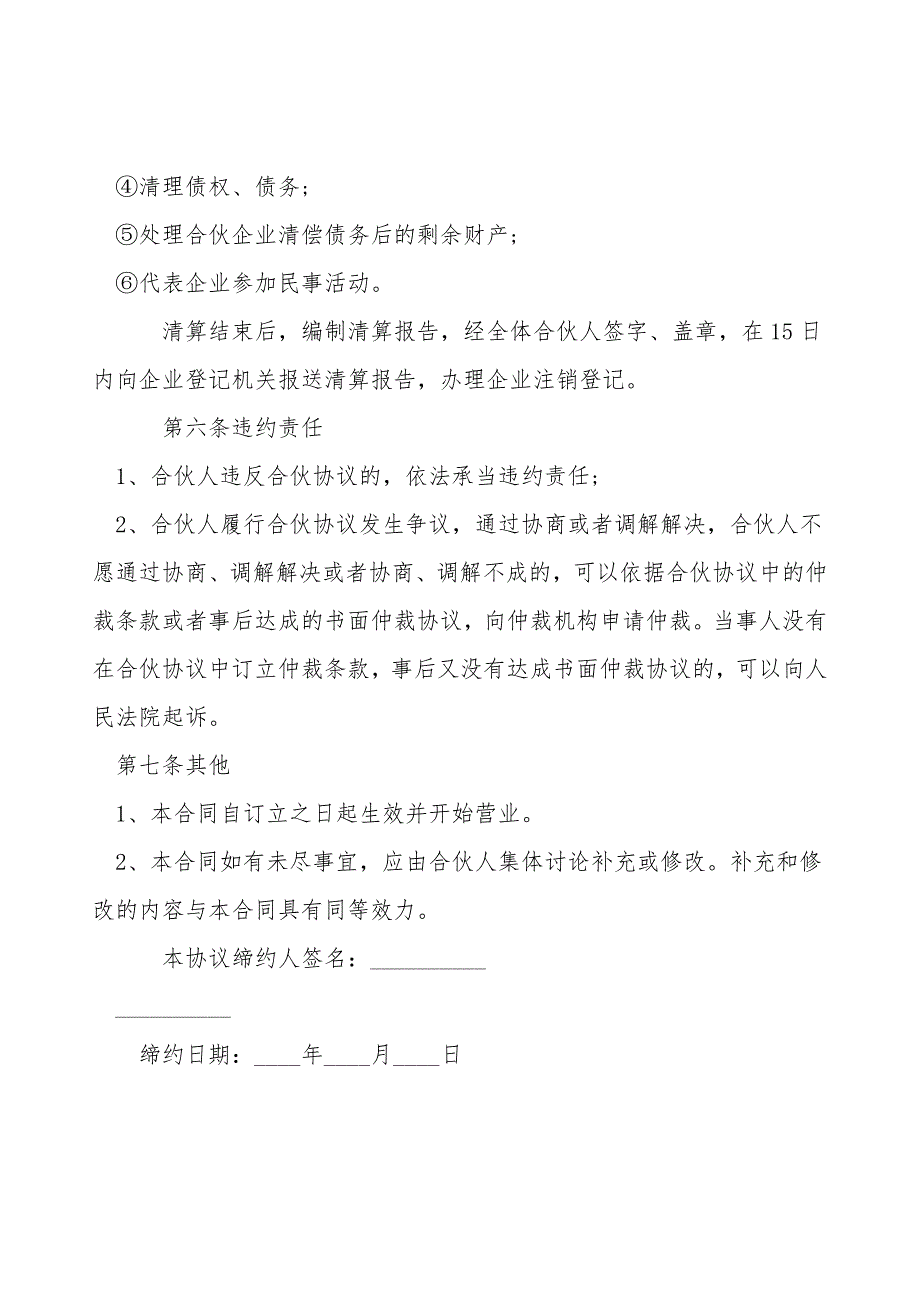 ④清理债权、债务;
⑤处理合伙企业清偿债务后的剩余财产;
⑥代表企业参加民事活动。
清算结束后，编制清算报告，经全体合伙人签字、盖章，在 15 日
内向企业登记机关报送清算报告，办理企业注销登记。
第六条违约责任
1、合伙人违反合伙协议的，依法承当违约责任;
2、合伙人履行合伙协议发生争议，通过协商或者调解解决，合伙人不
愿通过协商、调解解决或者协商、调解不成的，可以依据合伙协议中的仲
裁条款或者事后达成的书面仲裁协议，向仲裁机构申请仲裁。当事人没有
在合伙协议中订立仲裁条款，事后又没有达成书面仲裁协议的，可以向人
民法院起诉。
第七条其他
1、本合同自订立之日起生效并开始营业。
2、本合同如有未尽事宜，应由合伙人集体讨论补充或修改。补充和修
改的内容与本合同具有同等效力。
本协议缔约人签名：__________
__________
缔约日期：____年____月____日